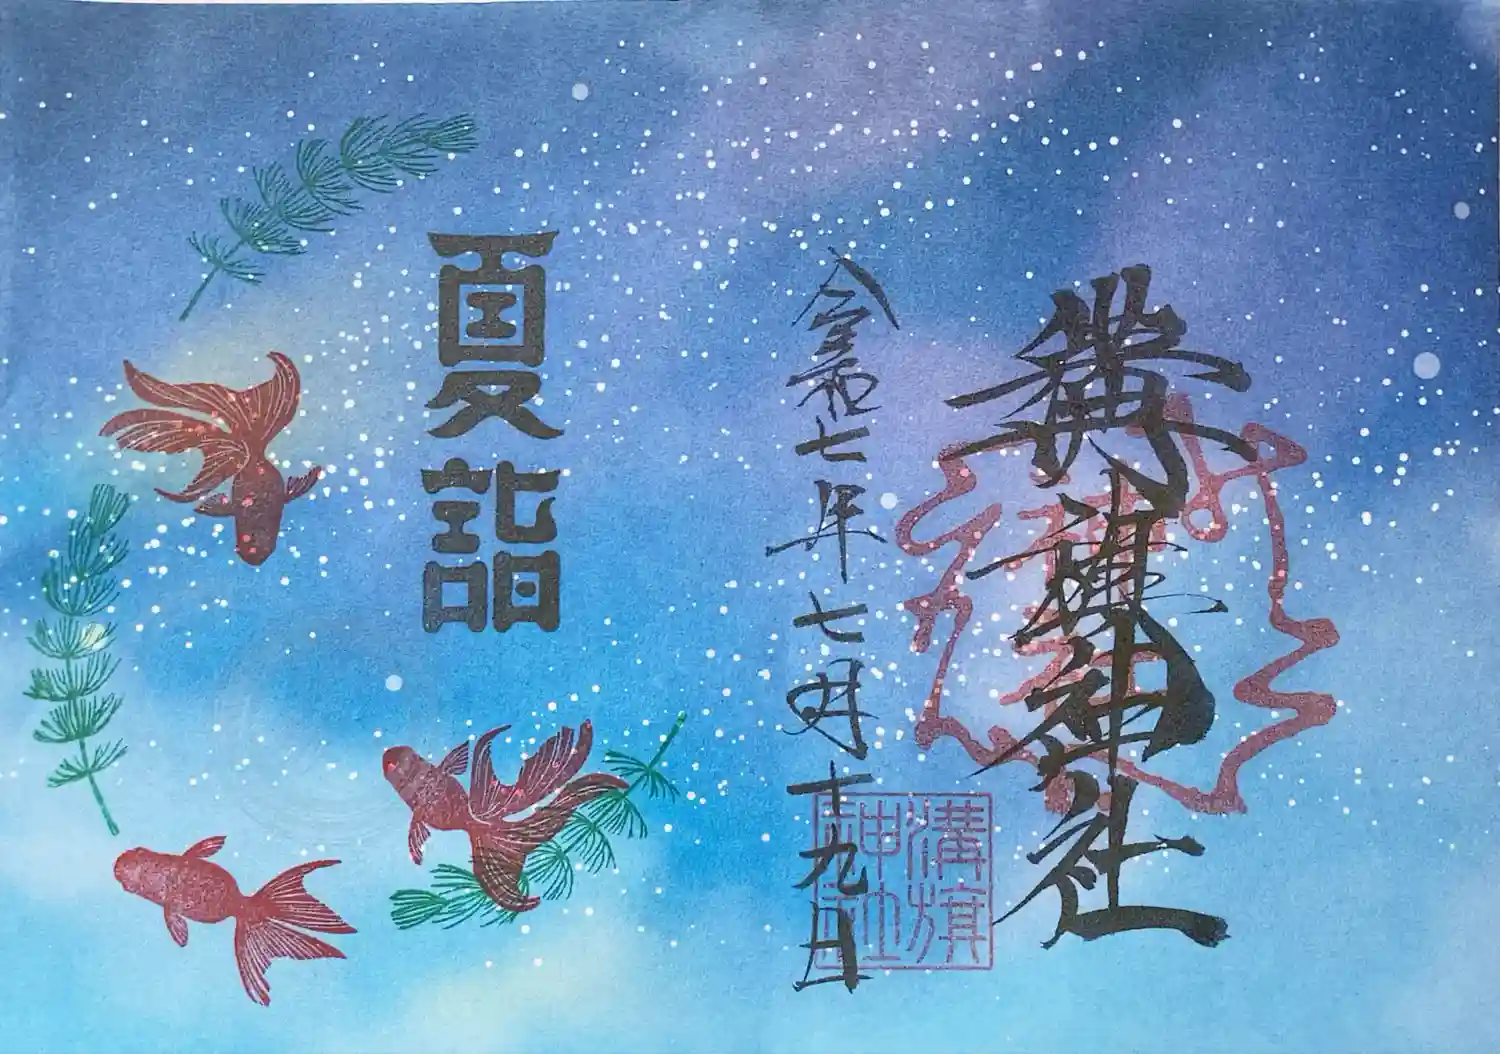 溝旗神社
令和七年七月十九日
溝旗
神社
夏詣